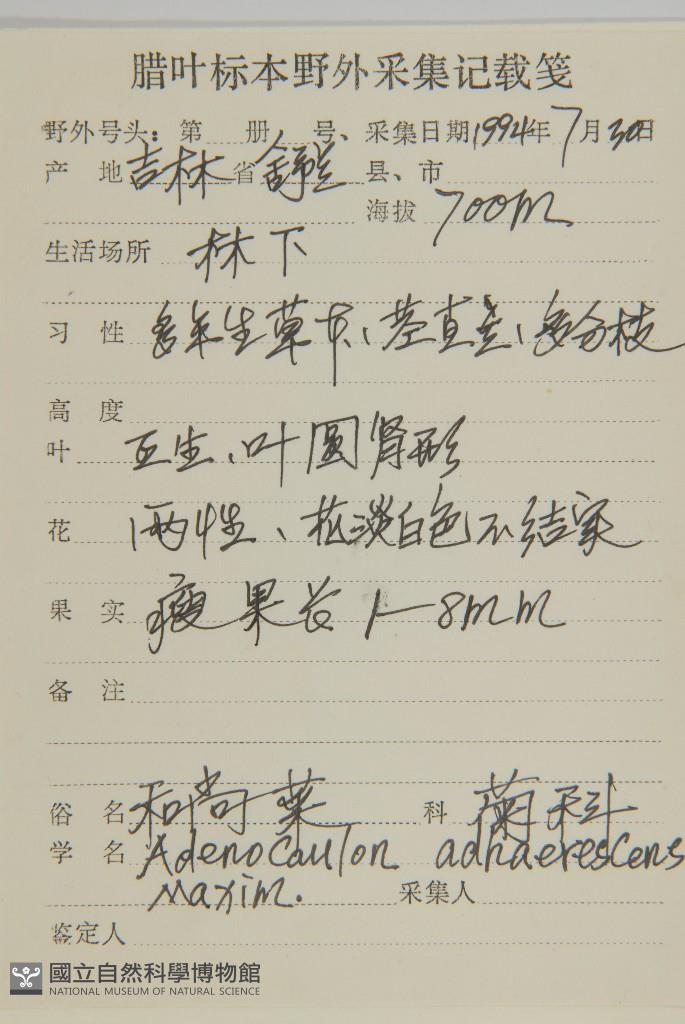 腊叶标本野外采集记载笺
野外号头: 第 册 号、采集日期1994年7月30日
产 地 吉林 省 舒兰 县、市
海拔 700m
生活场所 林下
习 性 多年生草本、茎直立、多分枝
高 度
叶 互生、叶圆肾形
花 两性、花淡白色不结实
果 实 瘦果长 1-8mm
备 注
俗 名 和尚菜 科 菊科
学 名 Adenocaulon adhaerescens
Maxim. 采集人
鉴定人
國立自然科學博物館
NATIONAL MUSEUM OF NATURAL SCIENCE